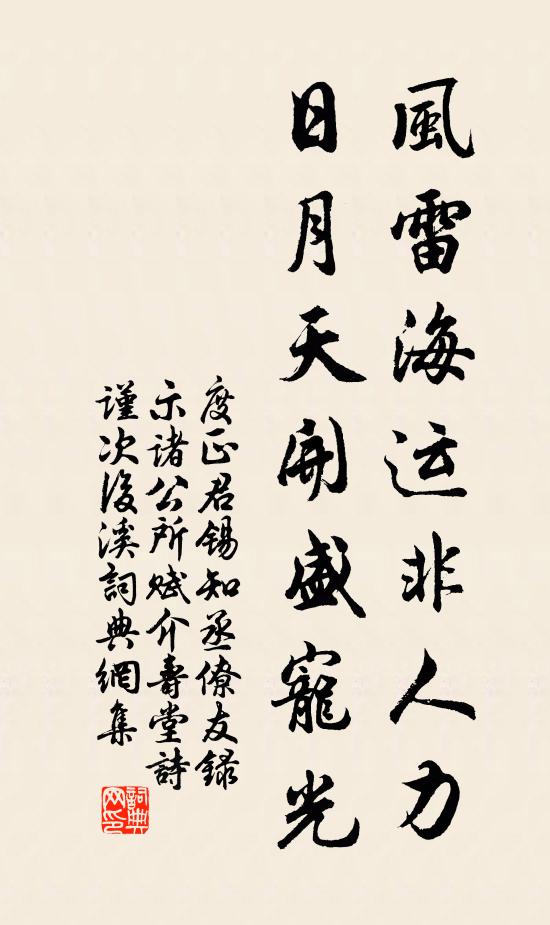 風雷海运非人力
日月天開盛寵光
度正君錫知丞僚友録
示諸公所赋介壽堂詩
謹次後溪詞典網集
詞典
网印